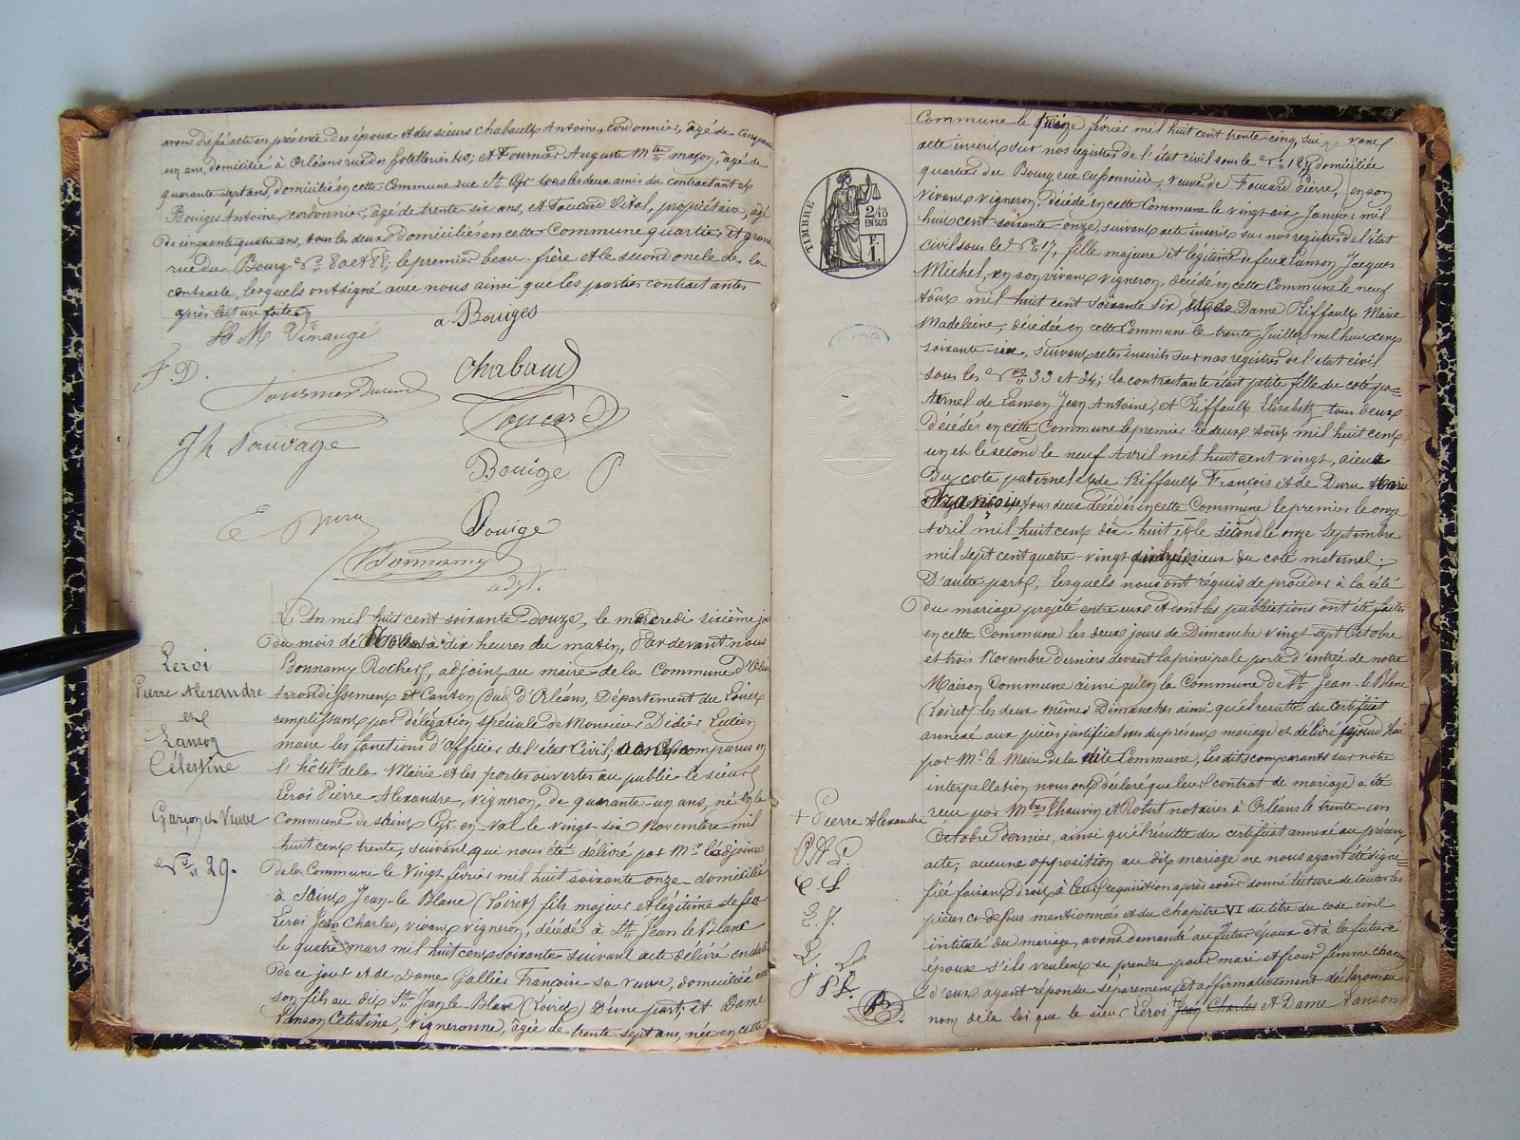 avons dressé acte en présence des époux et des sieurs Chabault Antoine, cordonnier, âgé de cinquante
un ans, domicilié à Orléans rue des hotelleries; et Fournier Auguste maçon, âgé de
quarante sept ans, domicilié en cette Commune rue St Cyr tous les deux amis du contractant et
Bouiges Antoine, cordonnier, âgé de trente six ans, et Foucard Vital, propriétaire, âgé
de cinquante quatre ans, tous les deux domiciliés en cette Commune quartier et grande
rue du Bourg Nos 80 et 88, le premier beau-frère et le second oncle de la
contracte, lesquels ont signé avec nous ainsi que les parties contractantes
après lecture faite
a Bouiges
F. D.
Chabault
Fournier
Foucard
Jh Sauvage
Bouige P
Bouige
Bonnamy
adjt.
L'An mil huit cent soixante douze, le mercredi sixième jour
du mois de Novembre à dix heures du matin, Par devant nous
Bonnamy adjoint au maire de la Commune
Arrondissement et Canton Sud d'Orléans, Département du Loiret
remplissant par délégation spéciale de Monsieur Didier Lucien
maire les fonctions d'officier de l'état Civil, ont comparus en
l'hôtel de la Mairie et les portes ouvertes au public le sieur
Leroi Pierre Alexandre, vigneron, de quarante un ans, né en la
Commune de Saint Cyr en Val le vingt six Novembre mil
huit cent trente, suivant qui nous été délivré par Mr l'adjoint
de la Commune le vingt février mil huit soixante onze domicilié
à Saint Jean-le-Blanc (Loiret) fils majeur et légitime de feu
Leroi Jean Charles, vivant vigneron, décédé à St Jean le Blanc
le quatre mars mil huit cent soixante suivant acte délivré en date
de ce jour et de Dame Gallier Françoise sa veuve, domiciliée avec
son fils au dit St Jean le Blanc (Loiret) D'une part; et Dame
Lanson Célestine, vigneronne, âgée de trente sept ans, née en cette
Leroi
Pierre Alexandre
et
Lanson
Célestine
Garçon et Veuve
No 29.
Commune le treize février mil huit cent trente cinq, suivant
acte inscrit sur nos registres de l'état civil sous le No 12, domiciliée
quartier du Bourg rue veuve de Foucard Pierre, en son
vivant vigneron, décédé en cette Commune le vingt six Janvier mil
huit cent soixante onze, suivant acte inscrit sur nos registres de l'état
civil sous le No 17, fille majeure et légitime de feux Lanson Jacques
Michel, en son vivant vigneron décédé en cette Commune le neuf
Août mil huit cent soixante six et de Dame Riffault Marie
Madeleine, décédée en cette Commune le trente Juillet mil huit cent
soixante six, suivant actes inscrits sur nos registres de l'état civil
sous les Nos 33 et 24; la contractante étant petite fille du coté pa=
ternel de Lanson Jean Antoine, et Riffault Elisabeth tous deux
décédés en cette Commune le premier le deux Août mil huit cent
un et le second le neuf Avril mil huit cent vingt, aieux
du coté paternel et de Riffault François et de Duru Marie
tous deux décédés en cette Commune le premier le onze
Avril mil huit cent dix huit et le second le onze Septembre
mil sept cent quatre-vingt aieux du coté maternel;
D'autre part, lesquels nous ont requis de procéder à la célé
du mariage projeté entre eux et dont les publications ont été faites
en cette Commune les deux jours de Dimanche vingt sept Octobre
et trois Novembre derniers devant la principale porte d'entrée de notre
Maison Commune ainsi qu'en la Commune de St Jean-le-Blanc
(Loiret) les deux mêmes Dimanches ainsi qu'il résulte du certificat
annexé aux pièces justificatives du présent mariage et délivré
par Mr le Maire de la dite Commune, les dits comparants sur notre
interpellation nous ont déclaré que leur contrat de mariage a été
reçu par Mtres Chauvin et Robert notaires à Orléans le trente-un
Octobre dernier, ainsi qu'il résulte du certificat annexé au présent
acte, aucune opposition au dit mariage ne nous ayant été signi=
fiée faisant droit à leur requisition après avoir donné lecture de toutes les
pièces ci-dessus mentionnées et du chapitre VI du titre du code civil
intitulé du mariage, avons demandé au futur époux et à la future
épouse s'ils veulent se prendre pour mari et pour femme chacun
d'eux ayant répondu séparement et affirmativement déclarons au
nom de la loi que le sieur Leroi Jean Charles et Dame Lanson
TIMBRE
2/10
EN SUS
F.
1.
+ Pierre Alexandre